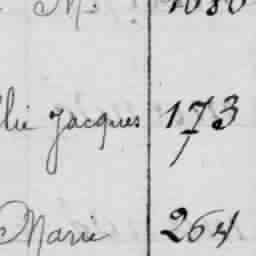 M. 1080
lie Jacques 173
Marie 264